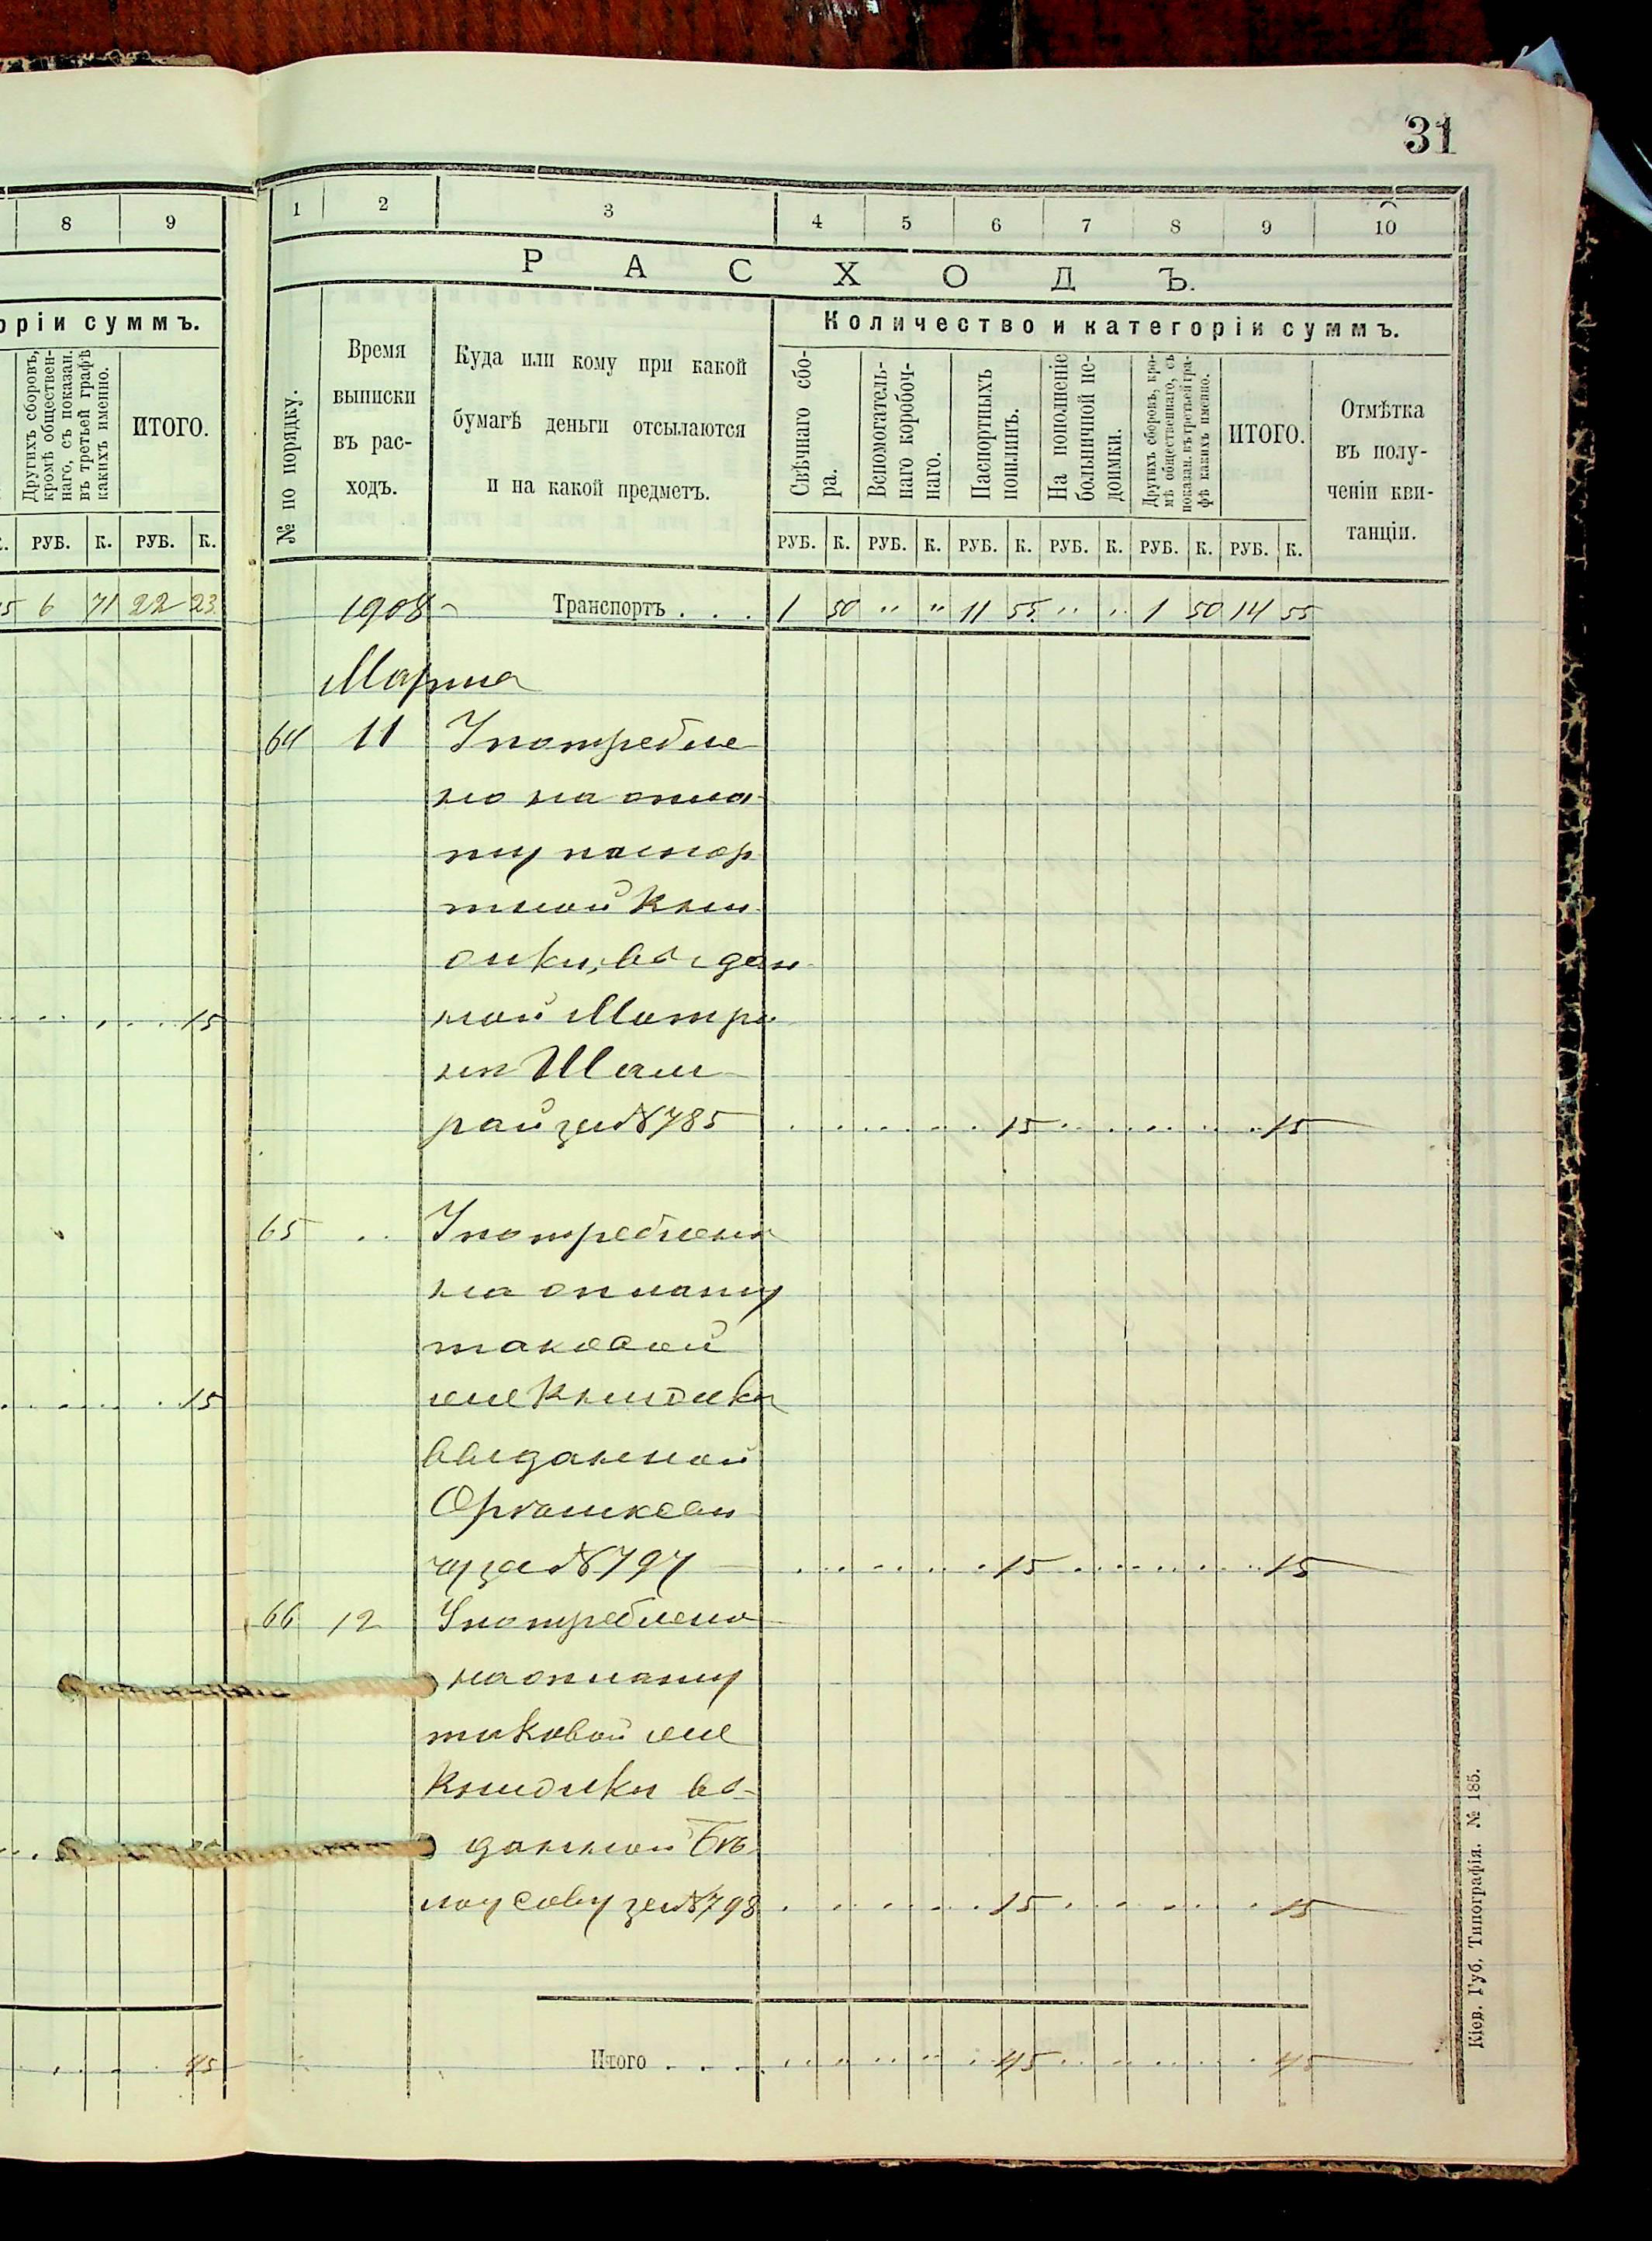 31
8 9
оріи суммъ.
Другихъ сборовъ, кромѣ обществен-наго, съ показан. въ третьей графѣ какихъ именно.
ИТОГО.
РУБ. К. РУБ. К.
6 71 22 23
15
15
45
1 2 3 4 5 6 7 8 9 10
РАСХОДЪ.
Количество и категоріи суммъ.
№ по порядку.
Время
выписки
въ рас-
ходъ.
Куда или кому при какой
бумагѣ деньги отсылаются
и на какой предметъ.
Свѣчнаго сбо-
ра.
Вспомогатель-
наго коробоч-
наго.
Паспортныхъ
пошлинъ.
На пополненіе
больничной не-
доимки.
Другихъ сборовъ, кро-
мѣ общественнаго, съ
показан. въ третьей гра-
фѣ какихъ именно.
ИТОГО.
Отмѣтка
въ полу-
ченіи кви-
танціи.
РУБ. К. РУБ. К. РУБ. К. РУБ. К. РУБ. К. РУБ. К.
1908 Транспортъ . . . 1 50 " " 11 55 " " 1 50 14 55
Марта
64 11 Употребле
но на опла-
ту паспор
тной кни
жки, выдан-
ной Матре
нѣ Шам
рай за № 785 15 15
65 " Употреблено
на оплату
таковой
же книжки
выданной
за № 797 15 15
66 12 Употреблено
на оплату
таковой же
книжки вы-
данной Бѣ
лоусову за № 798 15 15
Итого . . . 45 45
Кіев. Губ. Типографія. № 185.